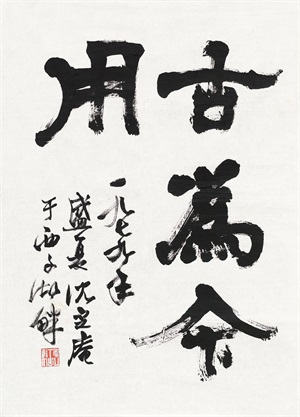 古為今
用
一九七九年
盛夏沈定庵
于西子湖畔